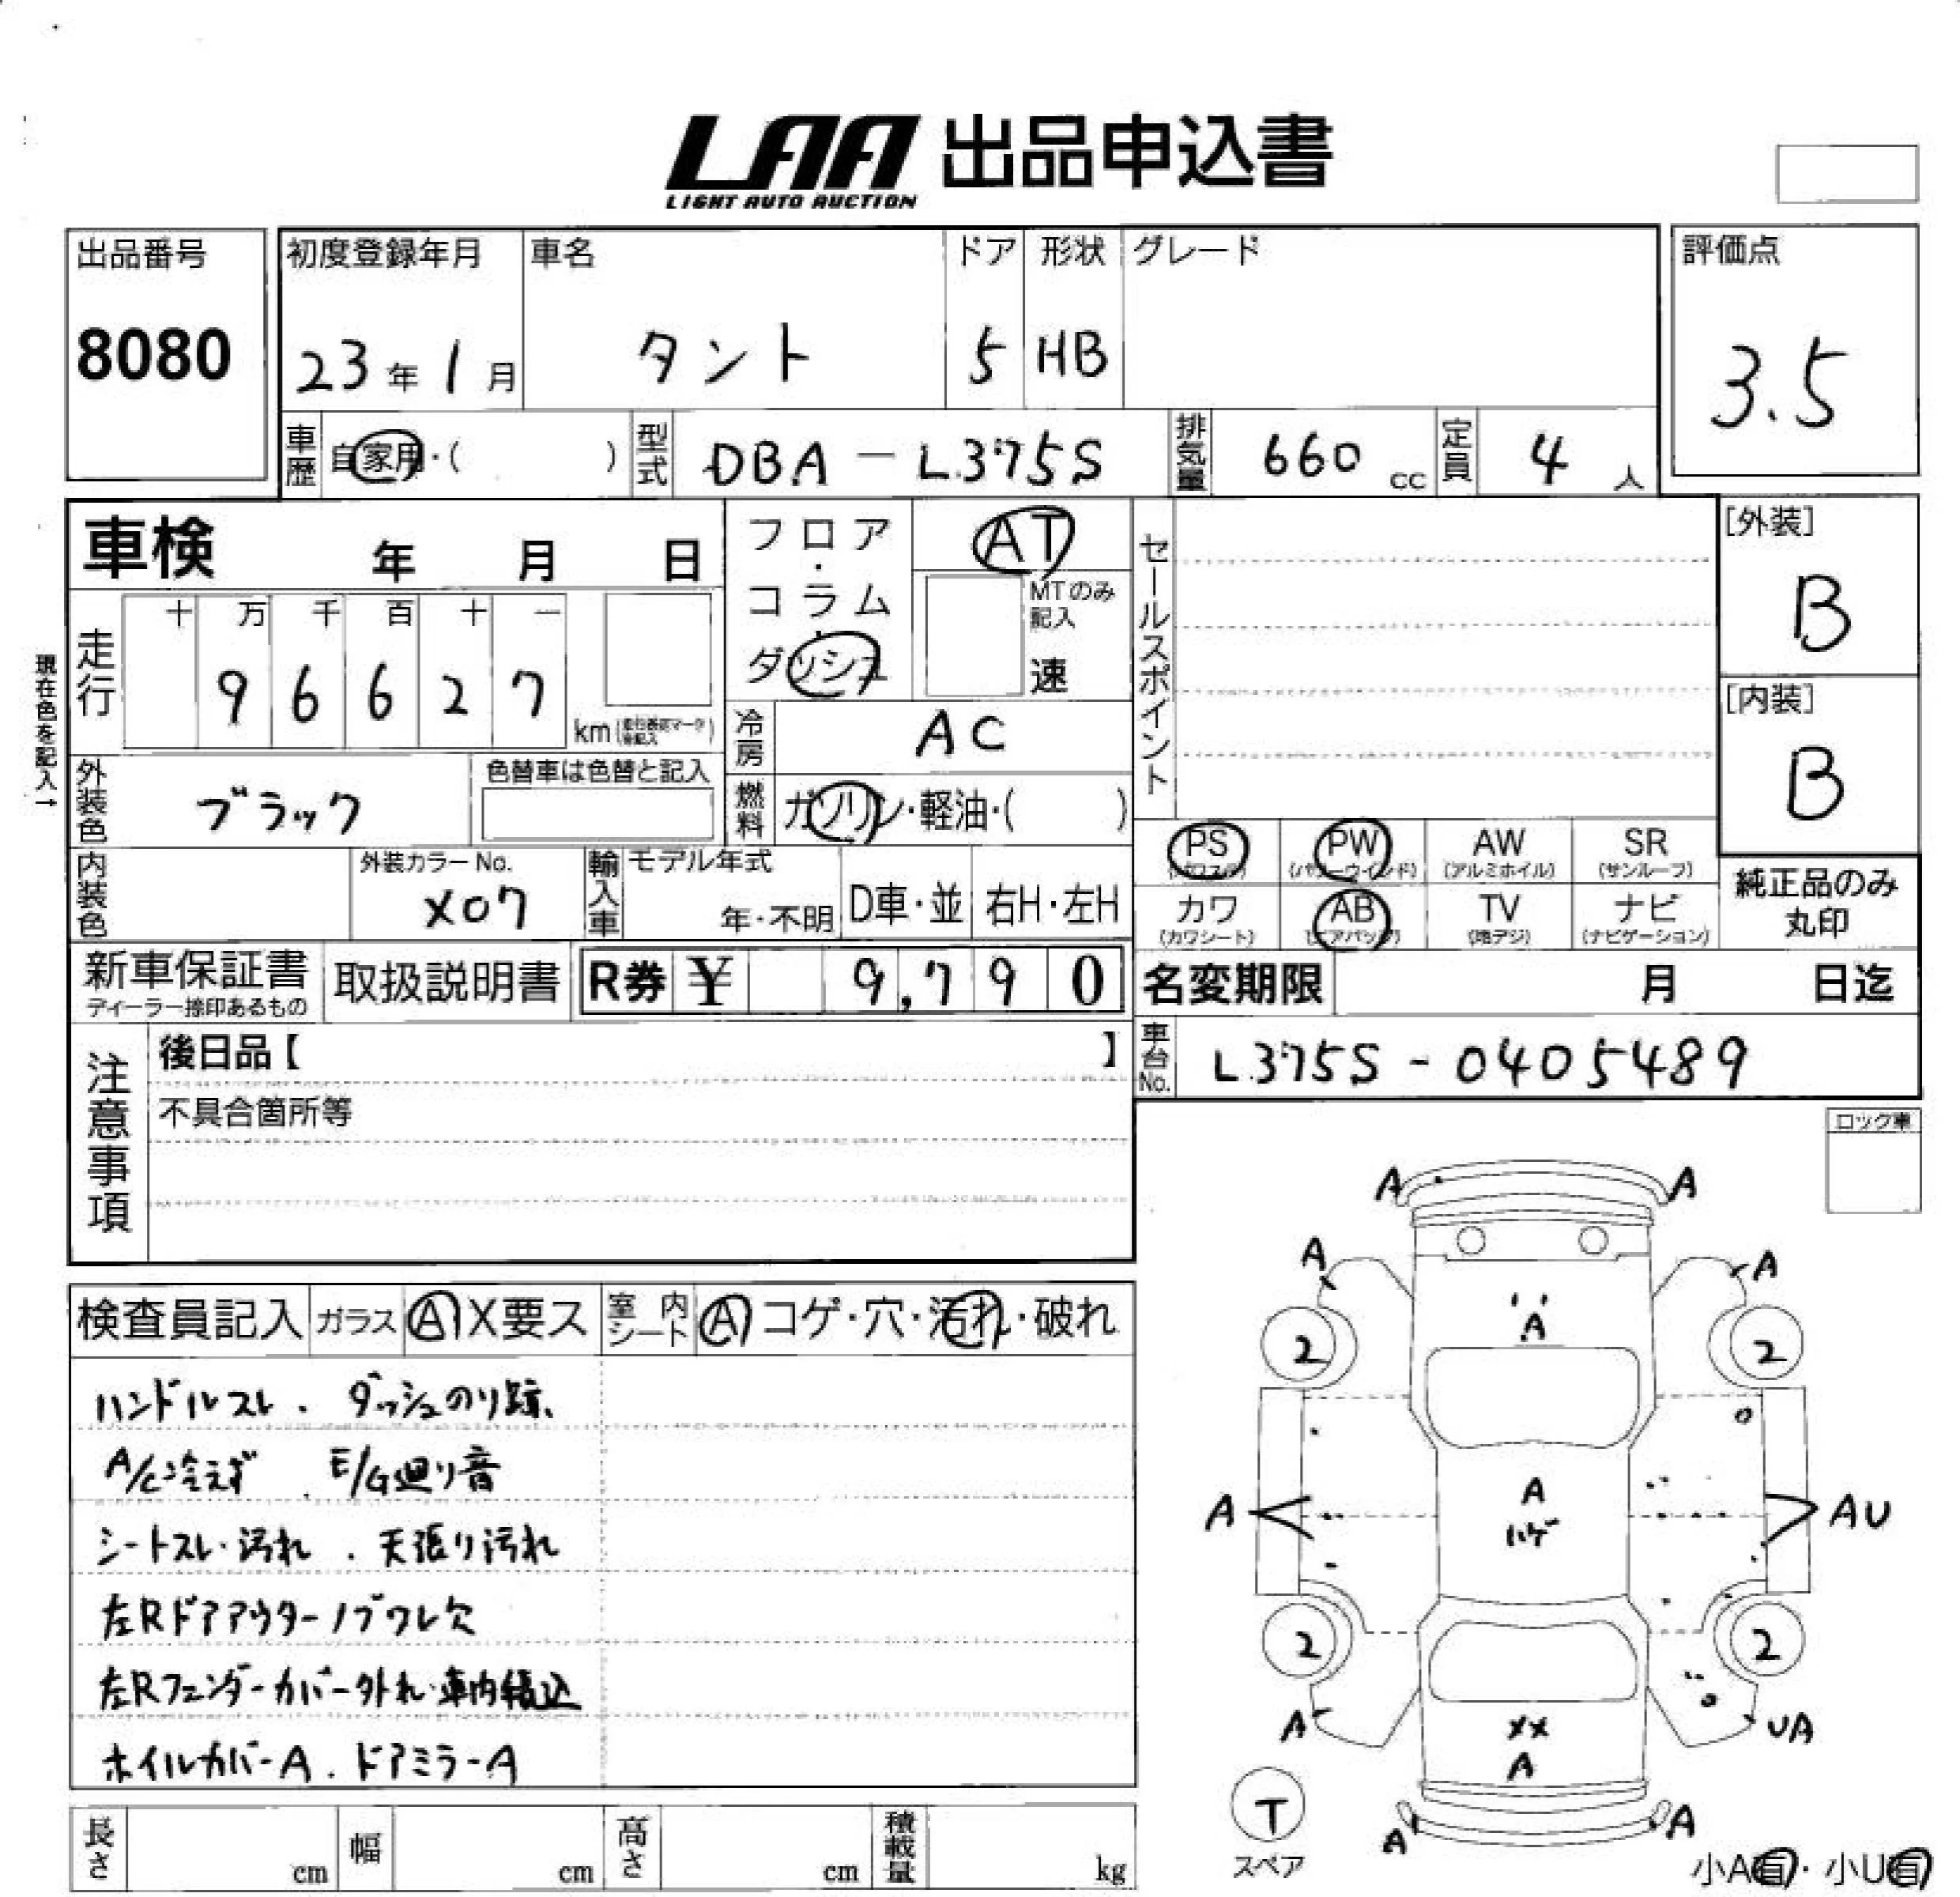 LAA 出品申込書
LIGHT AUTO AUCTION
出品番号 初度登録年月 車名 ドア 形状 グレード 評価点
8080 23年1月 タント 5 HB 3.5
車歴 自家用・( ) 型式 DBA-L375S 排気量 660 cc 定員 4 人
車検 年 月 日 フロア・コラム・ダッシュ AT セールスポイント [外装]
MTのみ記入 速 B
走行 十 万 千 百 十 一
9 6 6 2 7 km [内装]
現在色を記入→ 冷房 AC B
外装色 ブラック 色替車は色替と記入 燃料 ガソリン・軽油・( )
PS PW AW (アルミホイル) SR (サンルーフ)
内装色 外装カラーNo. X07 輸入車 モデル年式 年・不明 D車・並 右H・左H
カワ (カワシート) AB (エアバッグ) TV (地デジ) ナビ (ナビゲーション) 純正品のみ丸印
新車保証書 ディーラー捺印あるもの 取扱説明書 R券 ¥ 9,790 名変期限 月 日迄
注意事項 後日品【 】 車台No. L375S-0405489
不具合箇所等
ロック車
検査員記入 ガラス A X要ス 室内シート A コゲ・穴・汚れ・破れ
ハンドルスレ . ダッシュのり跡、
A/C冷えず . E/G廻り音
シートスレ・汚れ . 天張り汚れ
左Rドアアウターノブワレ欠
左Rフェンダーカバー外れ・車内積込
ホイルカバーA . ドアミラーA
A A
A A
A
2 2
A A AU
ハゲ
2 2
A XX UA
A
T A A
スペア
小A有・小U有
長さ cm 幅 cm 高さ cm 積載量 kg